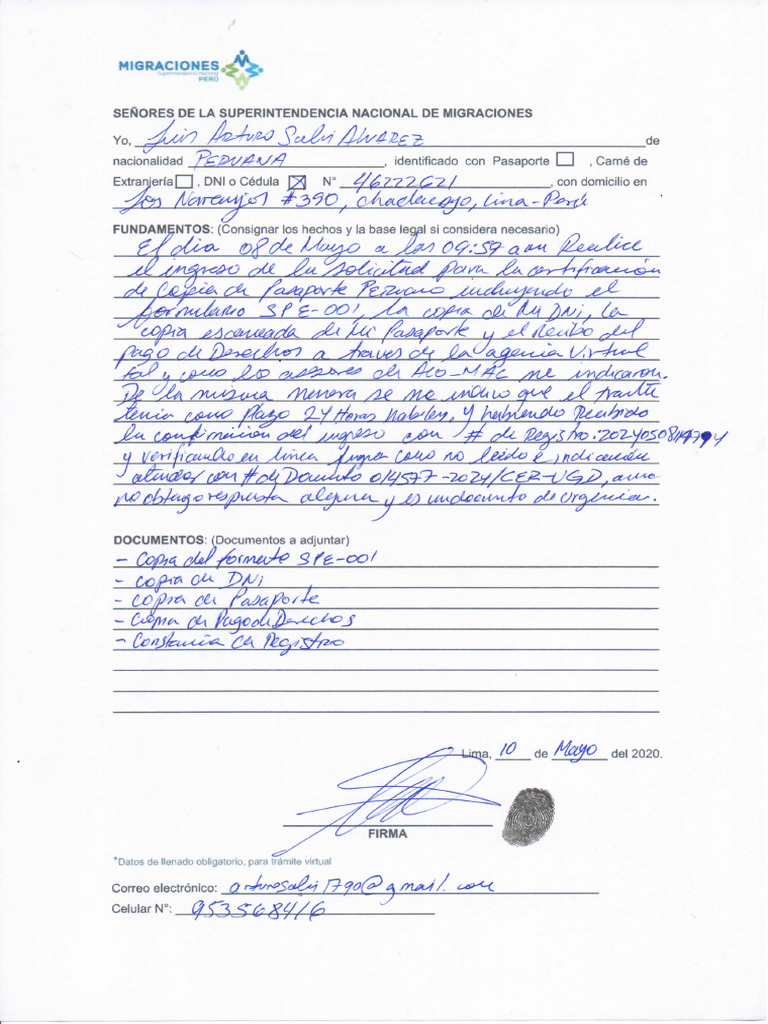 MIGRACIONES
Superintendencia Nacional
PERÚ
SEÑORES DE LA SUPERINTENDENCIA NACIONAL DE MIGRACIONES
Yo, Luis Arturo Salis Alvarez de
nacionalidad PERUANA, identificado con Pasaporte , Carné de
Extranjería , DNI o Cédula X N° 46222621, con domicilio en
Los Naranjos #390, Chaclacayo, Lima-Perú
FUNDAMENTOS: (Consignar los hechos y la base legal si considera necesario)
El dia 08 de Mayo a las 09:59 am Realice
el ingreso de la solicitud para la certificación
de Copia de Pasaporte Peruano incluyendo el
formulario SPE-001, la copia de Mi DNi, la
copia escaneada de Mi Pasaporte y el Recibo del
pago de Derechos a traves de la agencia Virtual
tal y como los asesores de ALO-MAC me indicaron.
De la misma manera se me indico que el tramite
tenia como Plazo 24 Horas habiles, y habiendo Recibido
la confirmación del ingreso con # de Registro:
y verificando en linea figura como no leido e indicación
atendido con # de Documento 014577-2024/CER-UGD, aun
no obtengo respuesta alguna y es un documento de urgencia.
DOCUMENTOS: (Documentos a adjuntar)
- Copia del formato SPE-001
- Copia de DNi
- Copia de Pasaporte
- Copia de Pago de Derechos
- Constancia de Registro
Lima, 10 de Mayo del 2020.
FIRMA
*Datos de llenado obligatorio, para trámite virtual
Correo electrónico: arturosalis1790@gmail.com
Celular N°: 953568416